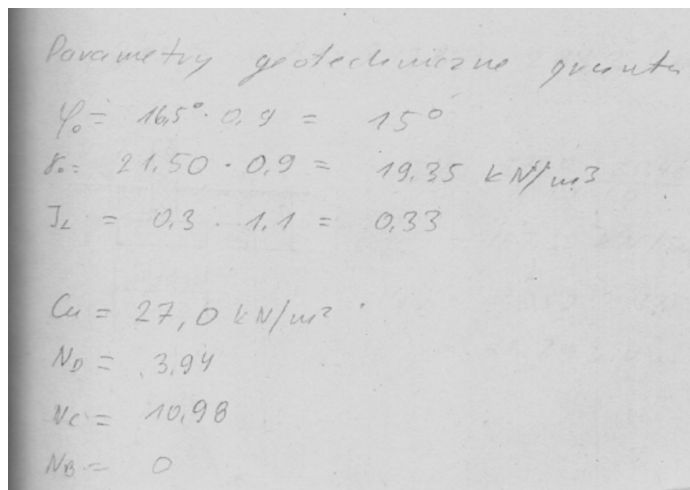 Parametry geotechniczne gruntu
φ₀ = 16,5° · 0,9 = 15°
γ₀ = 21,50 · 0,9 = 19,35 kN/m3
IL = 0,3 · 1,1 = 0,33
Cu = 27,0 kN/m²
ND = 3,94
NC = 10,98
NB = 0